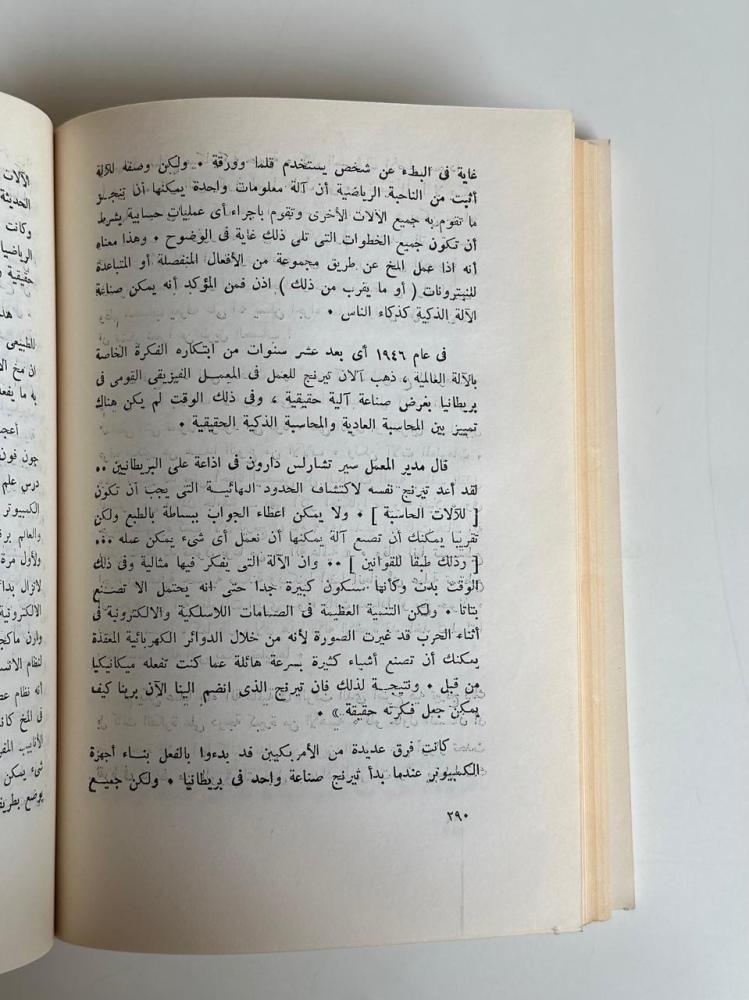 غاية فى البطء عن شخص يستخدم قلما وورقة • ولكن وصفه للآلة
أثبت من الناحية الرياضية أن آلة معلومات واحدة يمكنها أن تنجز
ما تقوم به جميع الآلات الأخرى وتقوم باجراء أى عمليات حسابية بشرط
أن تكون جميع الخطوات التى تلى ذلك غاية فى الوضوح • وهذا معناه
أنه اذا عمل المخ عن طريق مجموعة من الأفعال المنفصلة أو المتباعدة
للنيترونات ( أو ما يقرب من ذلك ) اذن فمن المؤكد أنه يمكن صناعة
الآلة الذكية كذكاء الناس •
فى عام ١٩٤٦ أى بعد عشر سنوات من ابتكاره الفكرة الخاصة
بالآلة العالمية ، ذهب آلان تيرنج للعمل فى المعمل الفيزيقى القومى فى
بريطانيا بغرض صناعة آلية حقيقية ، وفى ذلك الوقت لم يكن هناك
تمييز بين المحاسبة العادية والمحاسبة الذكية الحقيقية •
قال مدير المعمل سير تشارلس دارون فى اذاعة على البريطانيين ••
لقد أعد تيرنج نفسه لاكتشاف الحدود النهائية التى يجب أن تكون
[ للآلات الحاسبة ] • ولا يمكن اعطاء الجواب ببساطة بالطبع ولكن
تقريبا يمكنك أن تصنع آلة يمكنها أن تعمل أى شىء يمكن عمله •••
[ وذلك طبقا للقوانين ] •• وان الآلة التى يفكر فيها مثالية وفى ذلك
الوقت بدت وكأنها ستكون كبيرة جدا حتى انه يحتمل الا تصنع
بتاتا • ولكن التنمية العظيمة فى الصمامات اللاسلكية والالكترونية فى
أثناء الحرب قد غيرت الصورة لأنه من خلال الدوائر الكهربائية المعقدة
يمكنك أن تصنع أشياء كثيرة بسرعة هائلة عما كنت تفعله ميكانيكيا
من قبل • ونتيجة لذلك فان تيرنج الذى انضم الينا الآن يرينا كيف
يمكن جعل فكرته حقيقة » •
كانت فرق عديدة من الأمريكيين قد بدءوا بالفعل بناء أجهزة
الكمبيوتر عندما بدأ تيرنج صناعة واحد فى بريطانيا • ولكن جميع
٢٩٠